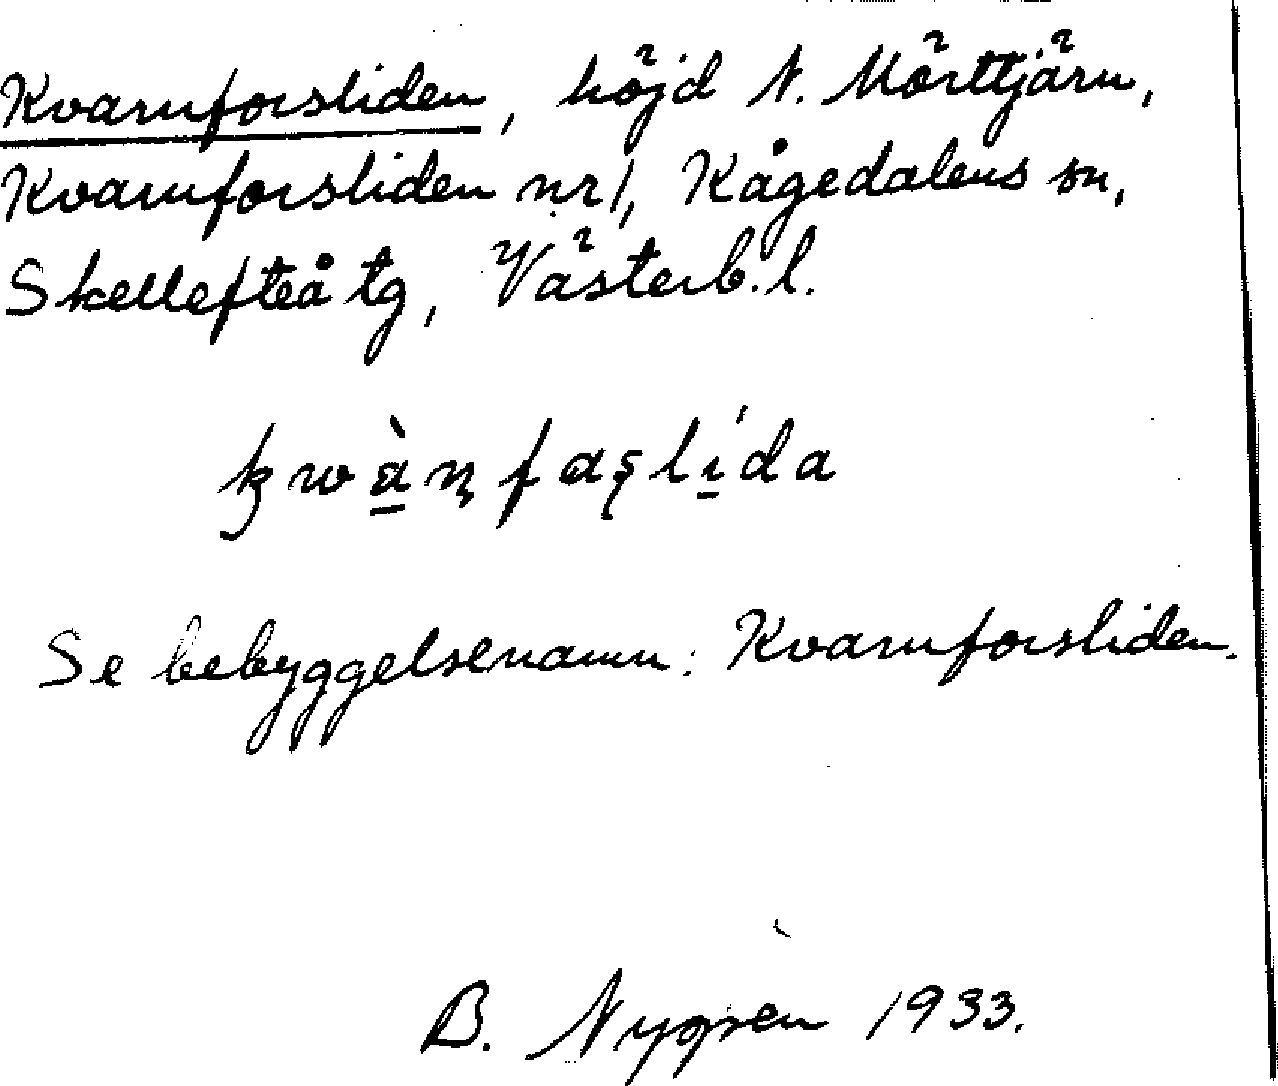 Kvarnforsliden, höjd N. Mörttjärn,
Kvarnforsliden nr 1, Kågedalens sn,
Skellefteå tg, Västerb. l.
kwànfaslída
Se bebyggelsenamn: Kvarnforsliden.
B. Nygren 1933.